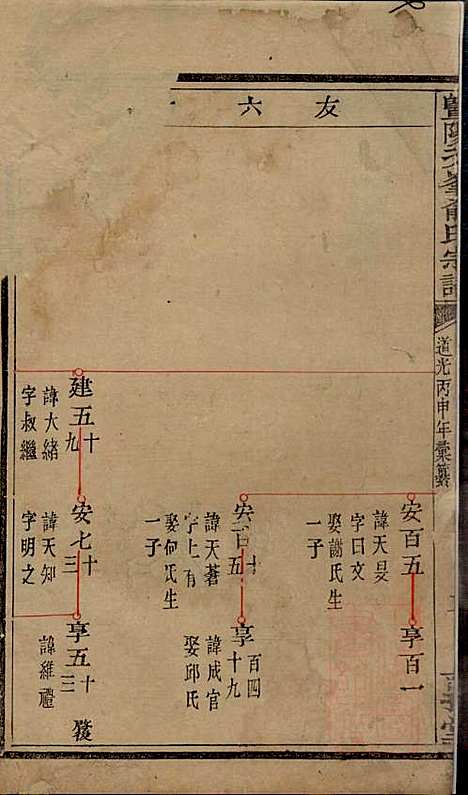 暨陽次峯俞氏宗譜
道光丙申年彙纂
友六
安百五
諱天旻
字曰文
娶謝氏生
一子
享百一
安百十五
諱天蒼
字上有
娶何氏生
一子
享百四十九
諱成官
娶邱氏
建五十九
諱大緒
字叔繼
安七十三
諱天知
字明之
享五十三
諱維禮
發